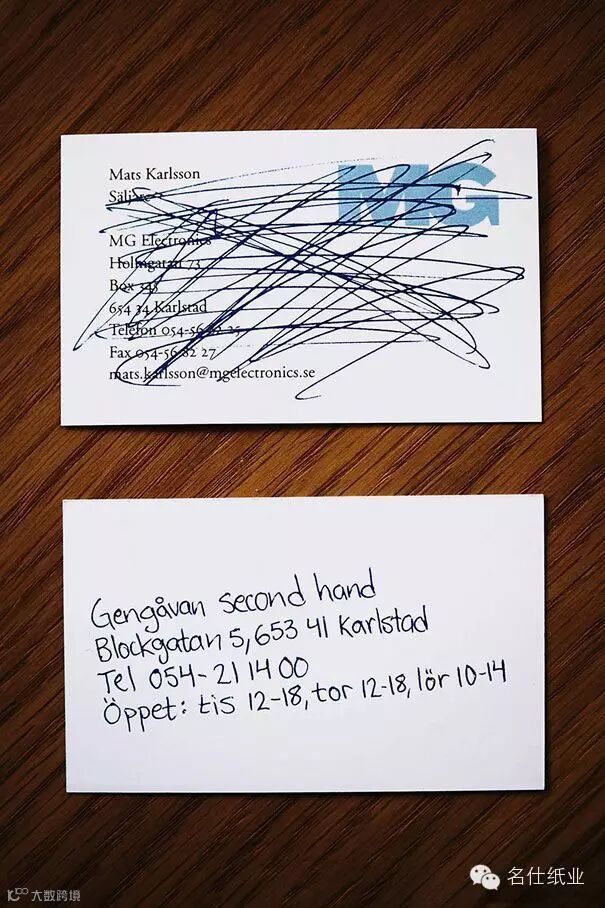 Mats Karlsson
Säljare
MG
MG Electronics
Holmgatan 73
Box 345
654 34 Karlstad
Telefon 054-56 82 25
Fax 054-56 82 27
mats.karlsson@mgelectronics.se
Gengåvan second hand
Blockgatan 5, 653 41 Karlstad
Tel 054-21 14 00
Öppet: tis 12-18, tor 12-18, lör 10-14
大数跨境
名仕纸业